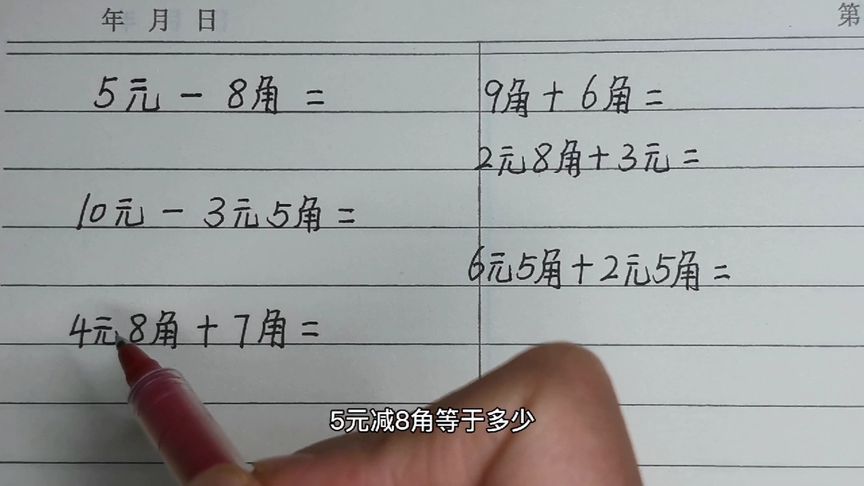 年 月 日
第
5元 - 8角 =
10元 - 3元5角 =
4元8角 + 7角 =
9角 + 6角 =
2元8角 + 3元 =
6元5角 + 2元5角 =
5元减8角等于多少